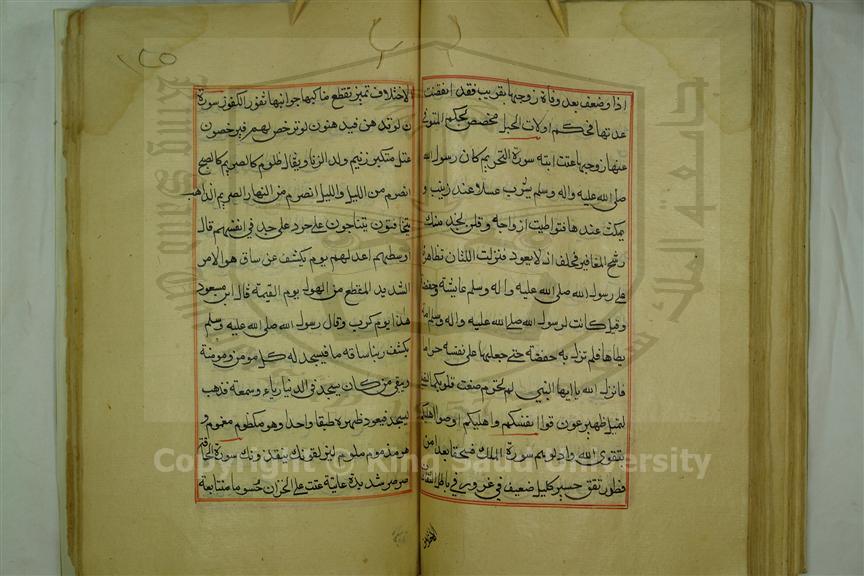 اذا وضعت بعد وفاة زوجها بقريب فقد انقضت
عدتها فحكم اولات الحبل مخصص لحكم المتوفى
عنها زوجها عنت ابته سورة التحريم كان رسول الله
صلى الله عليه واله وسلم يشرب عسلا عند زينب و
يمكث عندها فتواطيت ازواجه وقلن نجد منك
ريح المغافير فحلف انه لا يعود فنزلت اللتان تظاهرتا
على رسول الله صلى الله عليه واله وسلم عايشة وحفصة
وقيل كانت لرسول الله صلى الله عليه واله وسلم امة
يطاها فلم تزل به حفصة حتى جعلها على نفسه حراما
فانزل الله يا ايها النبي لم تحرم صغت قلوبكما
ظهير عون قوا انفسكم واهليكم اوصوا اهليكم
بتقوى الله وادبوهم سورة الملك فسحقا بعدا من
فطور تفق حسير كليل ضعيف في غرور في باطل
١٢٥
الاختلاف تميز تقطع مناكبها جوانبها تفور الكفور سورة
ن لو تدهن فيدهنون لو ترخص لهم فيرخصون
عتل متكبر زنيم ولد الزنا ويقال ظلوم كالصريم كالصبح
انصرم من الليل والليل انصرم من النهار الصريم الذاهب
يتخافتون يتناجون على حرد على جد في انفسهم قال
اوسطهم اعدلهم يوم يكشف عن ساق هو الامر
الشديد المفظع من الهول يوم القيمة قال ابن مسعود
هذا يوم كرب وقال رسول الله صلى الله عليه وسلم
يكشف ربنا ساقه ما فيسجد له كل مومن ومومنة
ويبقى من كان يسجد في الدنيا رياء وسمعة فذهب
ليسجد فيعود ظهره طبقا واحدا وهو مكظوم مغموم و
هو مذموم ملوم ليزلقونك ينفذونك سورة الحاقة
صرصر شديدة عاتية عتت على الخزان حسوما متتابعة
Copyright © King Saud University